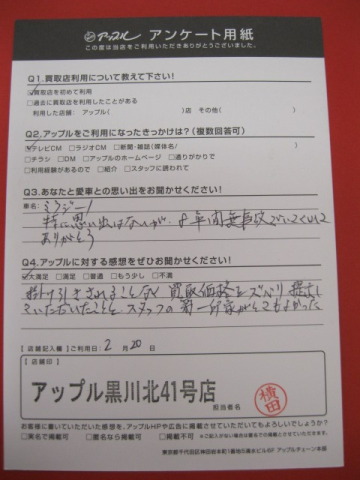 アップル アンケート用紙
この度は当店をご利用いただきありがとうございました。
Q1.買取店利用について教えて下さい!
□買取店を初めて利用
□過去に買取店を利用したことがある
利用した店舗: アップル( )店 その他( )
Q2.アップルをご利用になったきっかけは?(複数回答可)
□テレビCM □ラジオCM □新聞・雑誌(媒体名/ )
□チラシ □DM □アップルのホームページ □通りがかりで
□利用経験があるので □紹介 □スタッフに誘われて
Q3.あなたと愛車との思い出をお聞かせください!
車名: ミラジーノ
特に思い出はないが、8年間無事故でいてくれて
ありがとう
Q4.アップルに対する感想をぜひお聞かせください!
□大満足 □満足 □普通 □もう少し □不満
掛け引きされることなく買取価格をズバリ提示し
ていただいたことと、スタッフの第一印象がとてもよかった
【店舗記入欄】【ご利用日】 2 月 20 日
【店舗印】
アップル黒川北41号店
担当者名
横田
お客様に書いていただいた感想を、アップルHPや広告に掲載させていただいてもよろしいでしょうか?
□実名で掲載可 □匿名なら掲載可 □掲載不可
東京都千代田区神田岩本町1番地 アップルチェーン本部